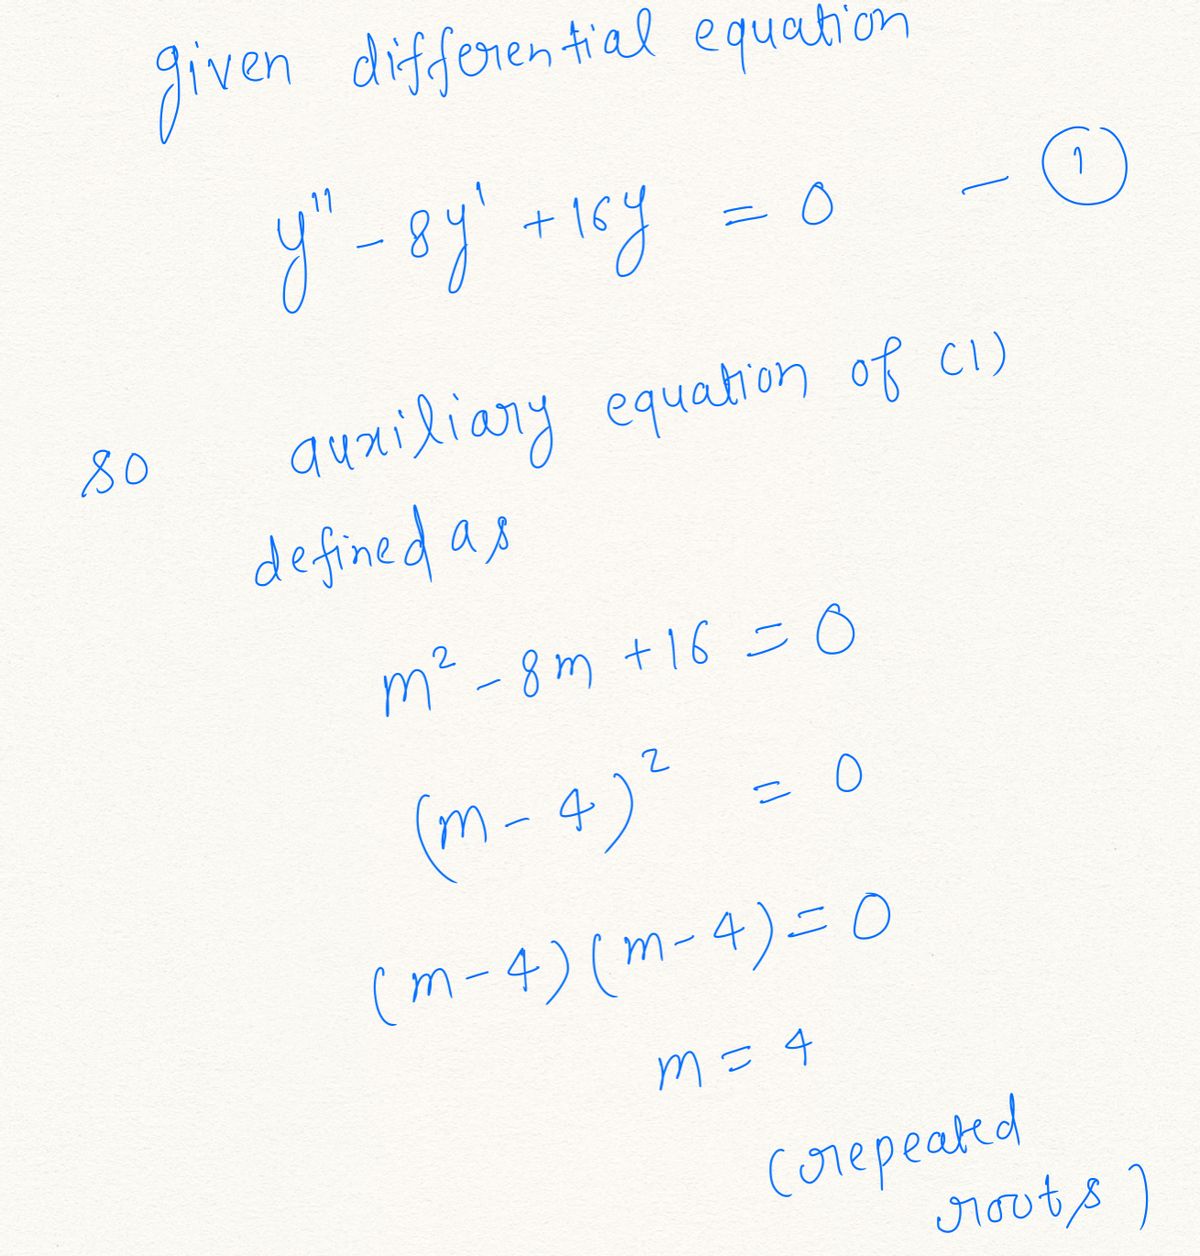 given differential equation
y'' - 8y' + 16y = 0 - ①
so auxiliary equation of (1)
defined as
m² - 8m + 16 = 0
(m - 4)² = 0
(m - 4) (m - 4) = 0
m = 4
(repeated
roots)